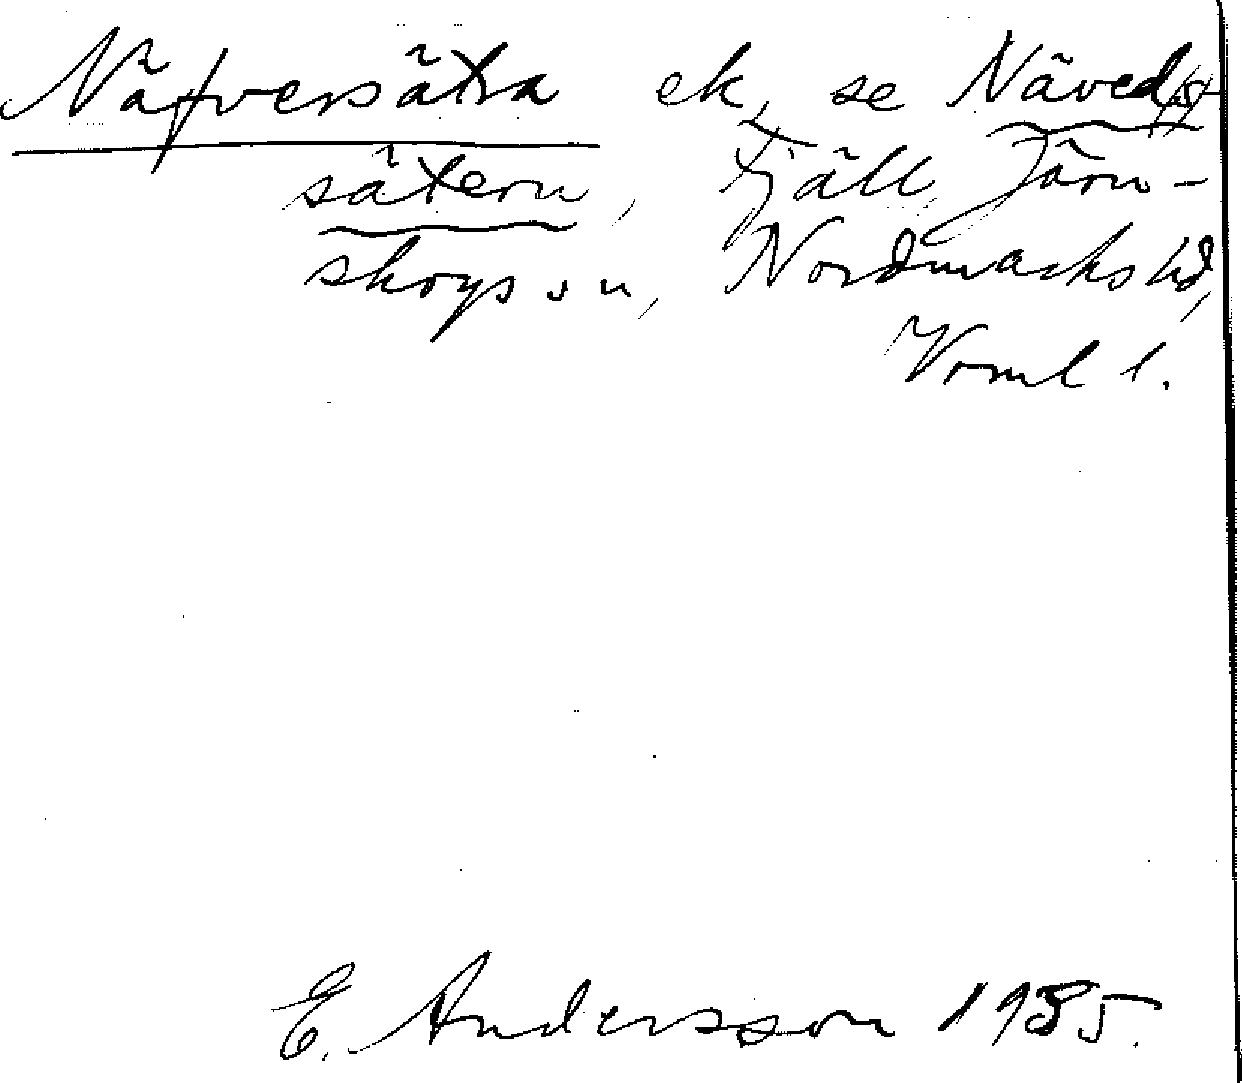 Näfversätra ek, se Näved
sätern, Fjäll, Järn-
skogs sn, Nordmarks hd,
Vrml l.
E. Andersson 1935.